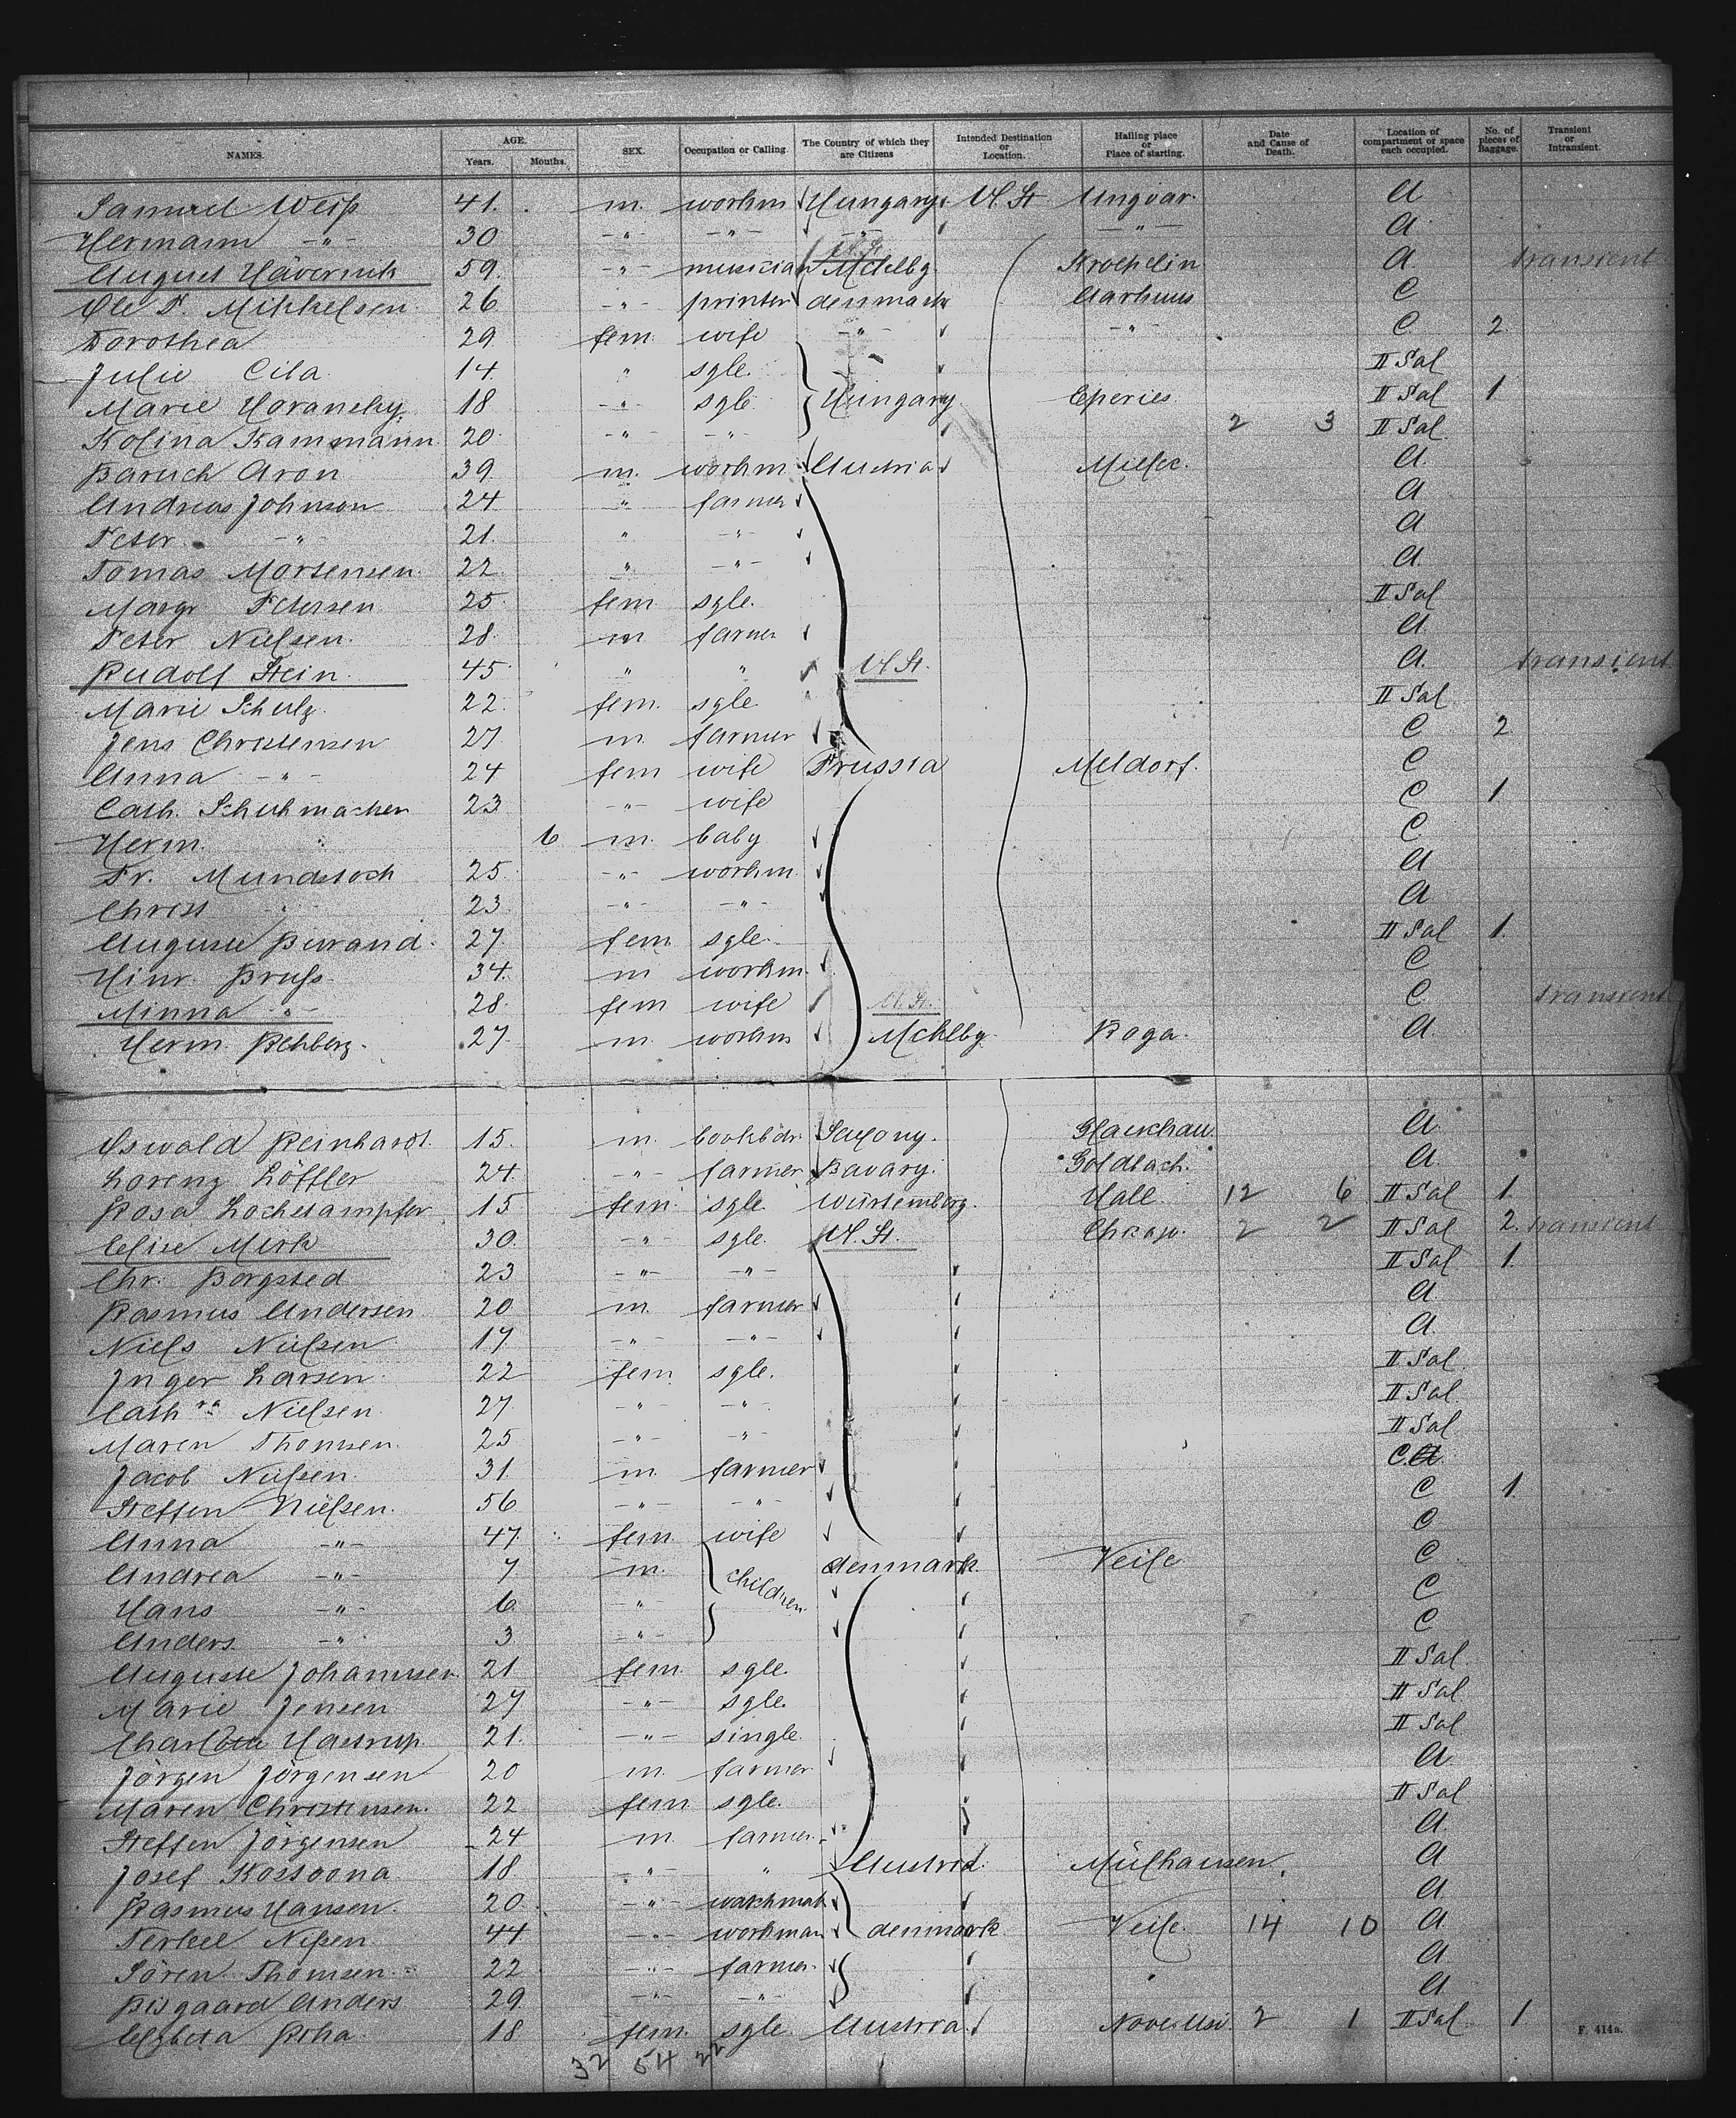 NAMES. AGE. Years. Months. SEX. Occupation or Calling. The Country of which they are Citizens Intended Destination or Location. Hailing place or Place of starting. Date and Cause of Death. Location of compartment or space each occupied. No. of pieces of Baggage. Transient or Intransient.
Samuel Weiss 41. m. workm Hungary U. St Ungvar. A
Hermann -"- 30 -"- -"- -"- -"- A
U. St.
August Hävernik 59. -"- musician Mcklbg. Kroepelin A transient
Ole P. Mikkelsen 26 -"- printer denmark Aarhuus C
Dorothea 29 fem. wife -"- -"- C 2
Julie Cila 14. " sgle. II Sal
Marie Horansky 18 -"- sgle Hungary Eperies II Sal 1
Kolina Kammann 20. -"- -"- 2 3 II Sal
Baruch Aron 39. m. workm. Austria Mielec. A.
Andreas Johnson 24 " farmer A
Peter -"- 21. " -"- A
Tomas Mortensen 22 " -"- A.
Margr Petersen 25. fem sgle. II Sal
Peter Nielsen. 28. m farmer A.
Rudolf Stein. 45 " " U. St. A. transient
Marie Schulz. 22. fem. sgle II Sal
Jens Christensen 27 m. farmer C 2
Anna -"- 24 fem wife Prussia Meldorf. C
Cath. Schuhmacher 23 -"- wife C 1
Herm. " 6 m. baby C
Fr. Mundstock 25. -"- workm. A
Christ -"- 23 -"- -"- A
Auguste Durand. 27. fem sgle. II Sal 1.
Hinr. Pruss. 34. m workm. C
Minna -"- 28. fem wife U. St. C transient
Herm. Rehberg. 27. m. workm Mcklbg. Roga. A.
Oswald Reinhardt. 15. m. bookbdr. Saxony. Glauchau. A.
Lorenz Löffler 24. -"- farmer Bavary. Goldbach. A.
Rosa Lochstampfer 15 fem. sgle. Würtemberg. Hall 12 6 II Sal 1
Elise Merk 30. -"- sgle. U. St. Chicago. 2 2 II Sal 2. transient
Chr. Borgsted 23 -"- -"- II Sal 1.
Rasmus Andersen 20 m. farmer A
Niels Nielsen 17. -"- -"- A.
Inger Larsen 22 fem sgle. II Sal
Cath ra Nielsen. 27. -"- -"- II Sal
Maren Thomsen. 25 -"- -"- II Sal
Jacob Nielsen. 31. m. farmer C.A.
Steffen Nielsen. 56 -"- -"- C 1.
Anna -"- 47. fem. wife C
Andrea -"- 7 m. children denmark. Veile C
Hans -"- 6 -"- C
Anders -"- 3 -"- C
Auguste Johannsen 21 fem sgle. II Sal
Marie Jensen 27 -"- sgle. II Sal
Charlotte Hastrup. 21. -"- single. II Sal
Jörgen Jörgensen 20 m. farmer A.
Maren Christensen. 22 fem sgle. II Sal
Steffen Jörgensen 24 m. farmer A.
Josef Kossoona. 18 -"- " Austria. Mülhausen. A
Rasmus Hansen. 20. -"- A.
Terkel Nissen 44 workman denmark Veile. 14 10 A.
Sören Thomsen 22 -"- farmer A
Risgaard Anders 29 -"- -"- A
Elzbeta Roha. 18 fem. sgle. Austria. 2 1 II Sal. 1
F. 414a.
32 54 22